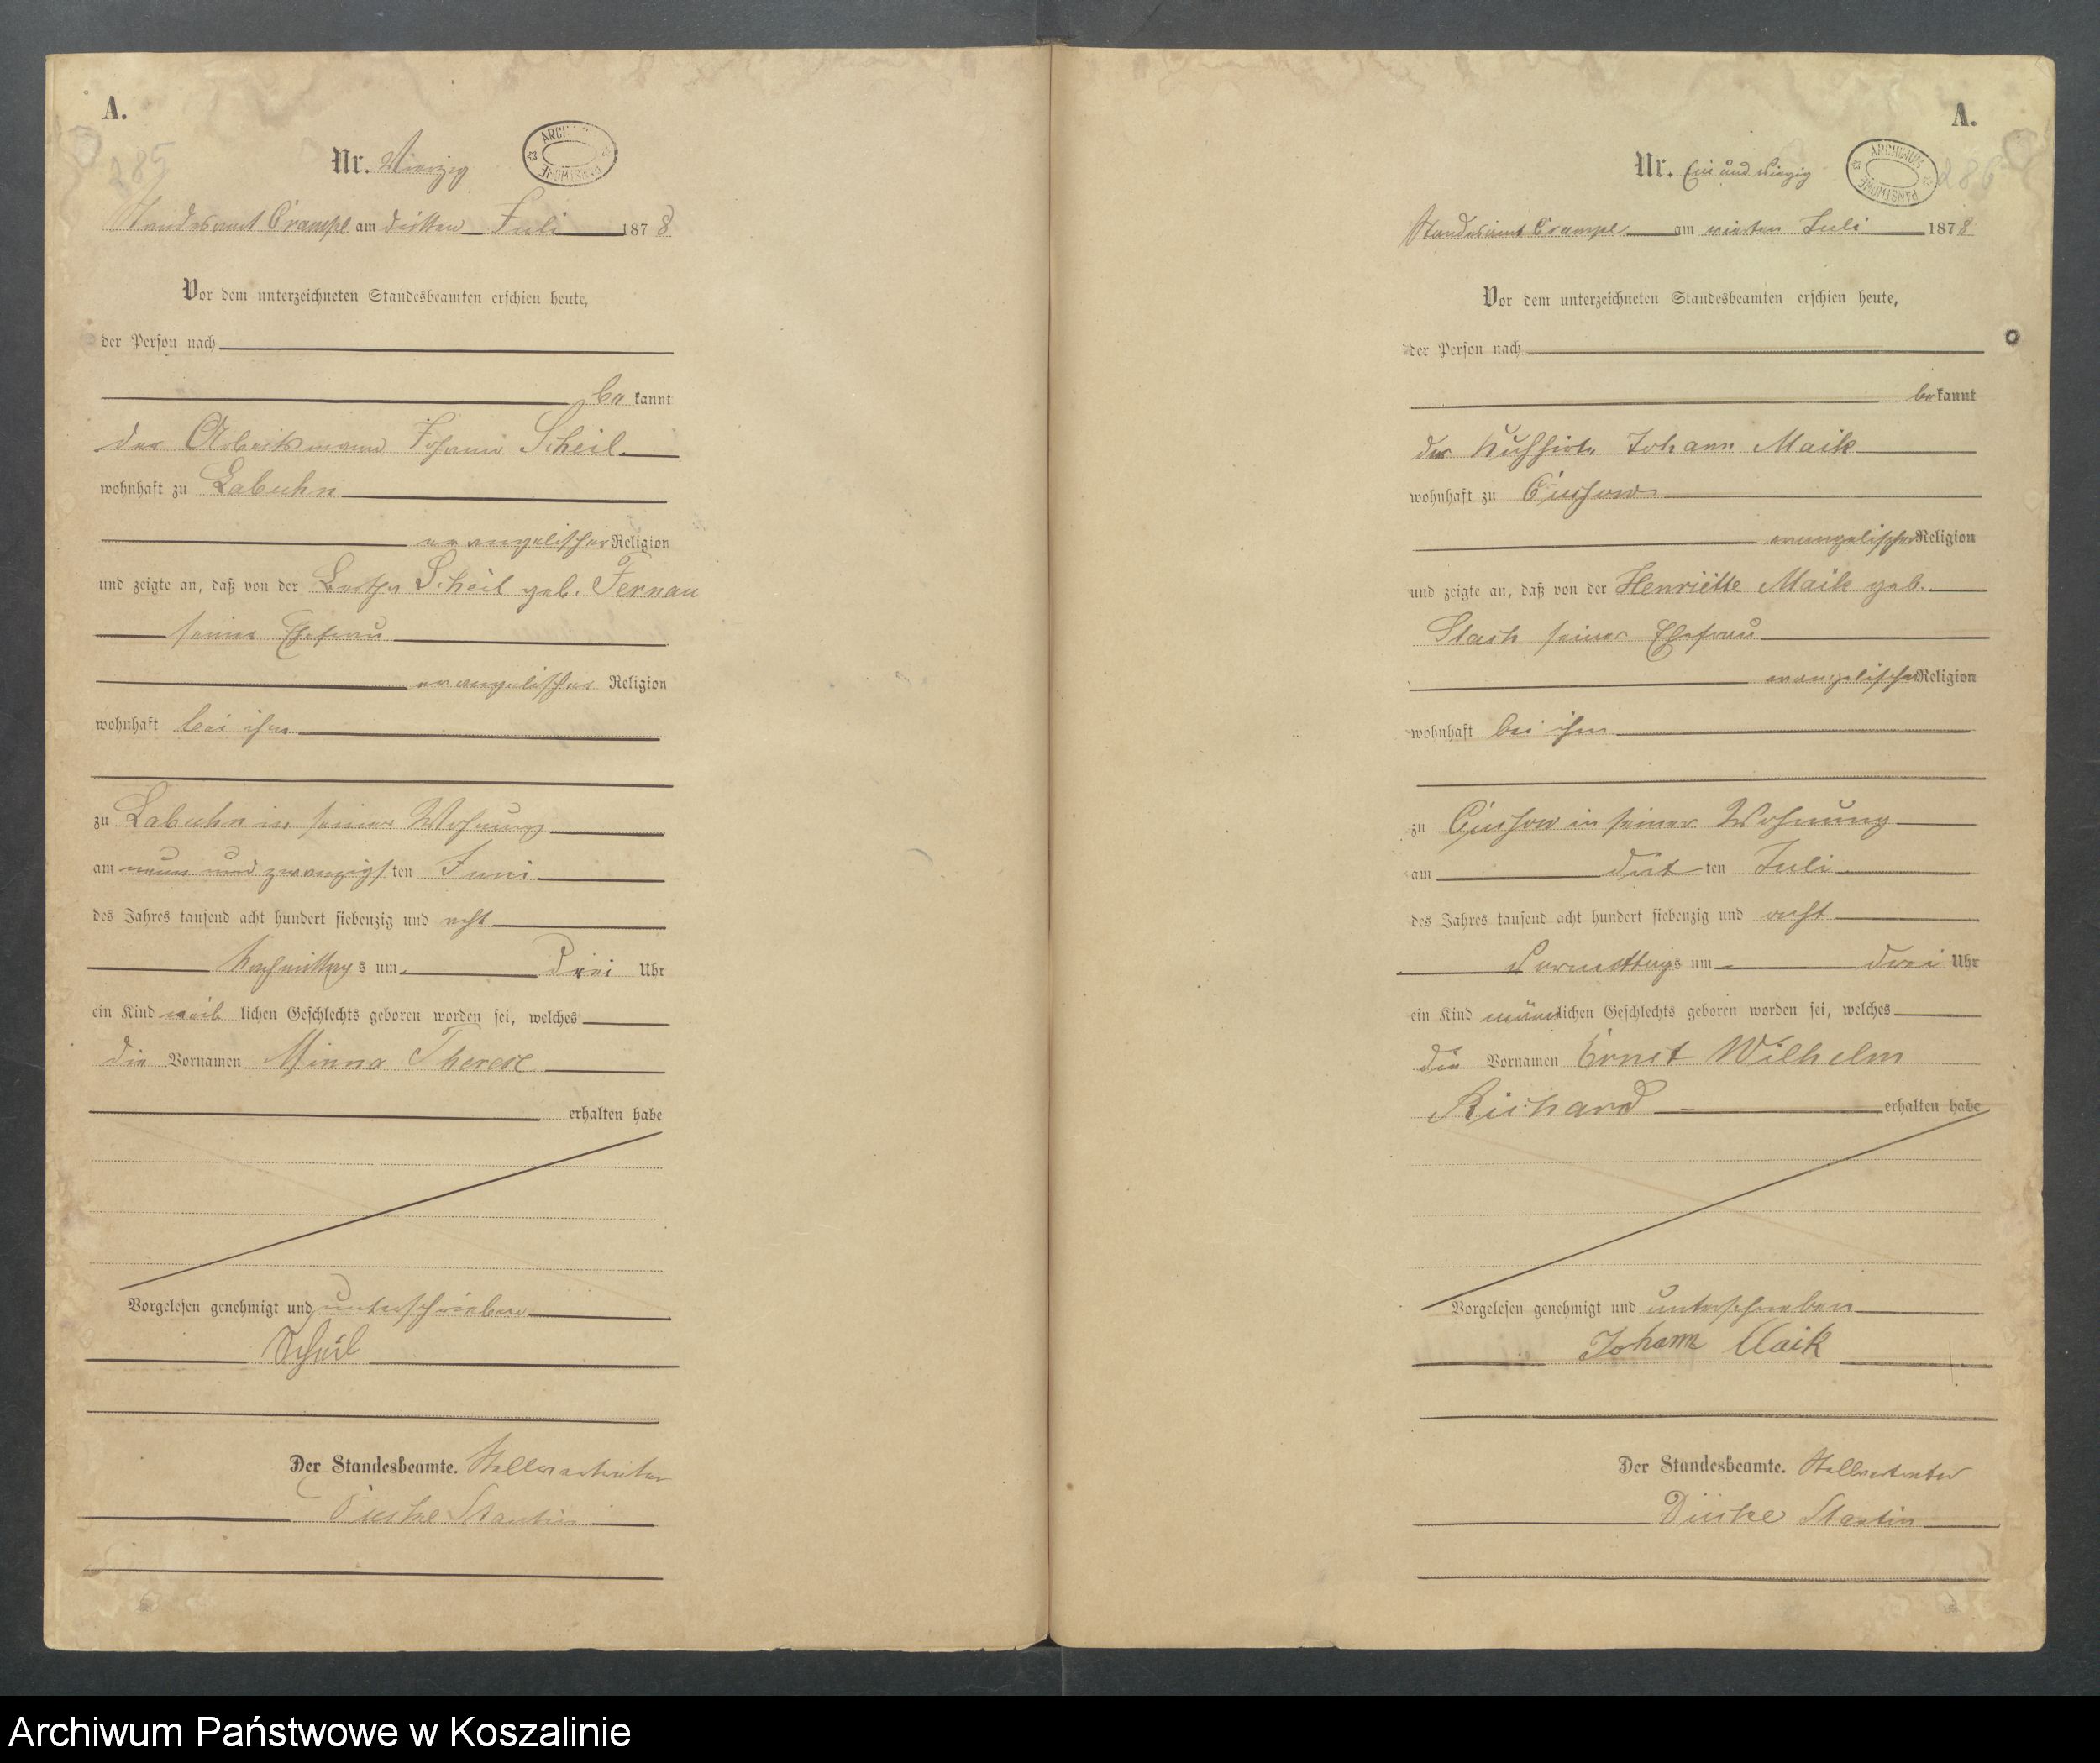 A.
285
Nr. Vierzig
ARCHIWUM PAŃSTWOWE
Standesamt Crampe am dritten Juli 1878
Vor dem unterzeichneten Standesbeamten erschien heute,
der Person nach
be kannt
der Arbeitsmann Johann Scheil
wohnhaft zu Labuhn
evangelischer Religion
und zeigte an, daß von der Scheil geb. Fernau
seiner Ehefrau
evangelischer Religion
wohnhaft bei ihm
zu Labuhn in seiner Wohnung
am neun und zwanzigsten Juni
des Jahres tausend acht hundert siebenzig und acht
Nachmittags um Drei Uhr
ein Kind weiblichen Geschlechts geboren worden sei, welches
die Vornamen Minna Therese
erhalten habe
Vorgelesen genehmigt und unterschrieben
Scheil
Der Standesbeamte. Stellvertreter
A.
286
Nr. Ein und vierzig
ARCHIWUM PAŃSTWOWE
Standesamt Crampe am vierten Juli 1878
Vor dem unterzeichneten Standesbeamten erschien heute,
der Person nach
bekannt
der Kuhhirte Johann Maik
wohnhaft zu
evangelischer Religion
und zeigte an, daß von der Henriette Maik geb.
seiner Ehefrau
evangelischer Religion
wohnhaft bei ihm
zu in seiner Wohnung
am dritten Juli
des Jahres tausend acht hundert siebenzig und acht
Vormittags um drei Uhr
ein Kind männlichen Geschlechts geboren worden sei, welches
die Vornamen Ernst Wilhelm
Richard erhalten habe
Vorgelesen genehmigt und unterschrieben
Johann Maik
Der Standesbeamte. Stellvertreter
Archiwum Państwowe w Koszalinie